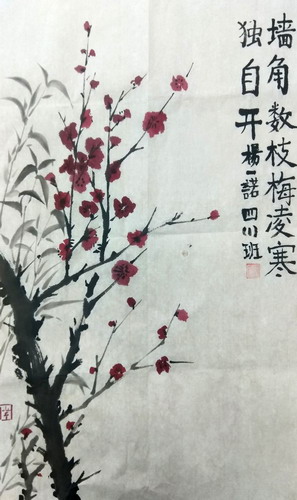 墙角数枝梅凌寒
独自开杨一諾四川班